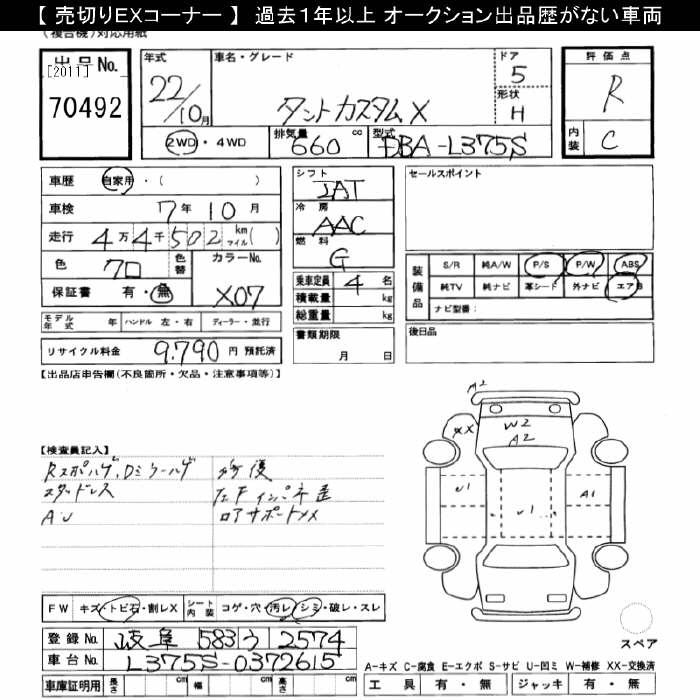 【 売切りEXコーナー 】 過去１年以上 オークション出品歴がない車両
(複合機)対応用紙
出品No.
[2011]
70492
年式
22/10月
車名・グレード
タントカスタム X
ドア
5
形状
H
評価点
R
内装
C
2WD・4WD
排気量
660 cc
型式
DBA-L375S
車歴 自家用・( )
車検 7年 10月
走行 4万4千502 km マイル( )
色 クロ
色替
カラーNo.
X07
保証書 有・無
モデル年式 年 ハンドル 左・右 ディーラー・並行
リサイクル料金 9,790 円 預託済
シフト
IAT
冷房
AAC
燃料
G
乗車定員 4 名
積載量 kg
総重量 kg
書類期限
月 日
セールスポイント
装備品
S/R 純A/W P/S P/W ABS
純TV 純ナビ 革シート 外ナビ エアB
ナビ型番：
後日品
【出品店申告欄(不良箇所・欠品・注意事項等)】
【検査員記入】
スタッドレス
AU
左F インパネ歪
ロアサポートXX
M2
XX
W2
A2
U1
U1
A1
FW キズ・トビ石・割レX
シート内装 コゲ・穴・汚レ・シミ・破レ・スレ
登録No. 岐阜 583 う 2574
車台No. L375S-0372615
車庫証明用 長さ cm 幅 cm 高さ cm
スペア
A-キズ C-腐食 E-エクボ S-サビ U-凹ミ W-補修 XX-交換済
工具 有・無 ジャッキ 有・無